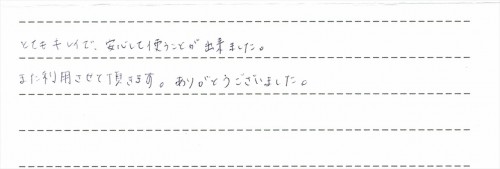 とてもキレイで、安心して使うことが出来ました。
また利用させて頂きます。ありがとうございました。